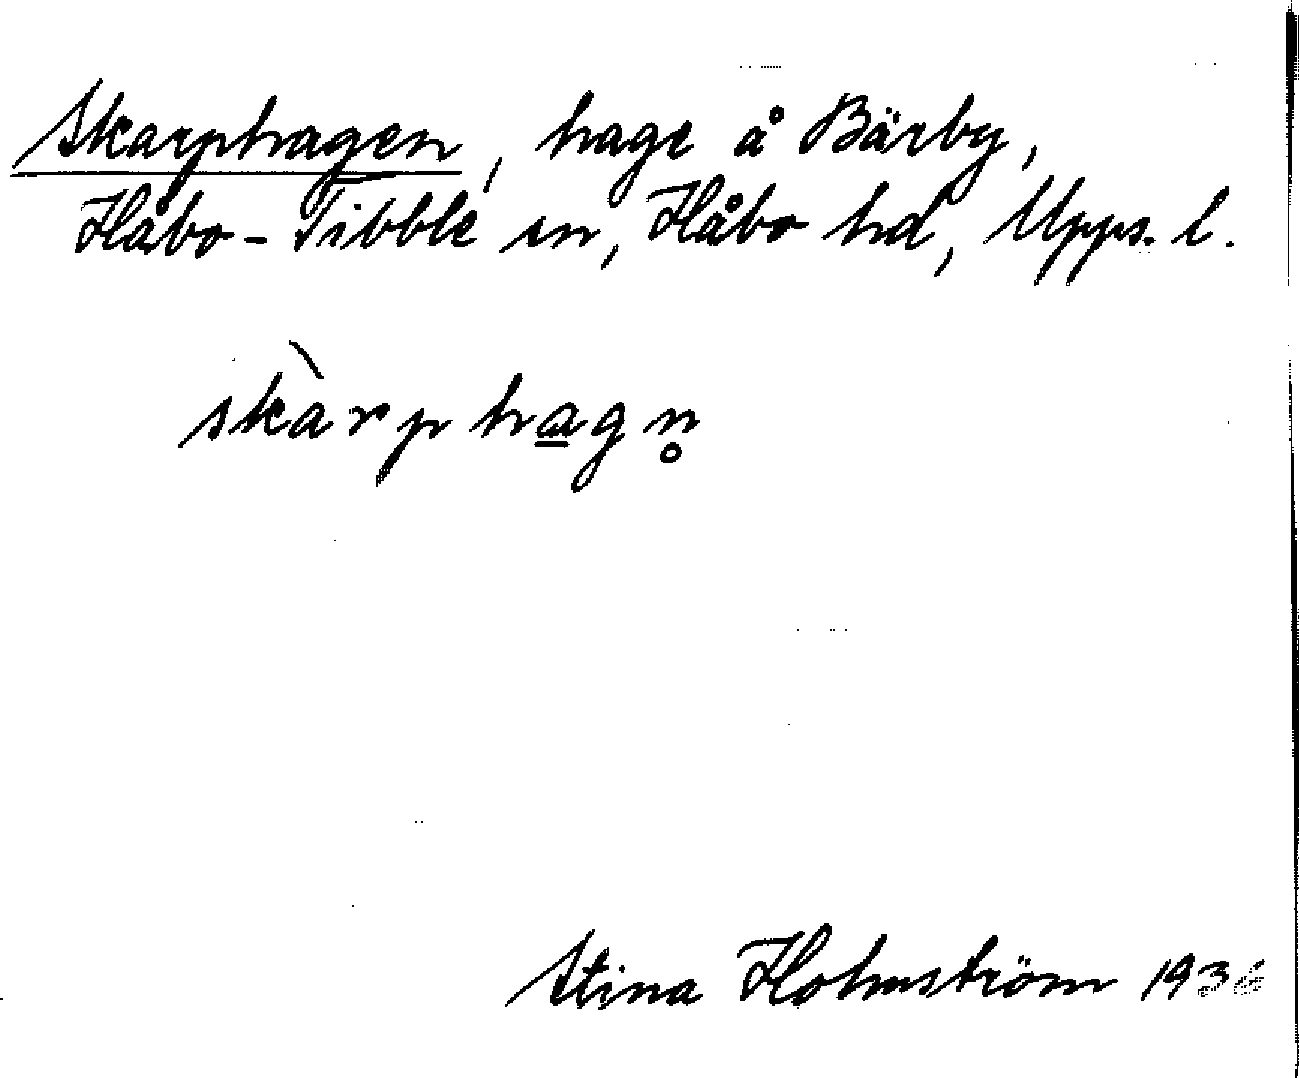 Skarphagen, hage å Bärby,
Håbo-Tibble sn, Håbo hd, Upps. l.
skàrpha̳gn̥
Stina Holmström 1936